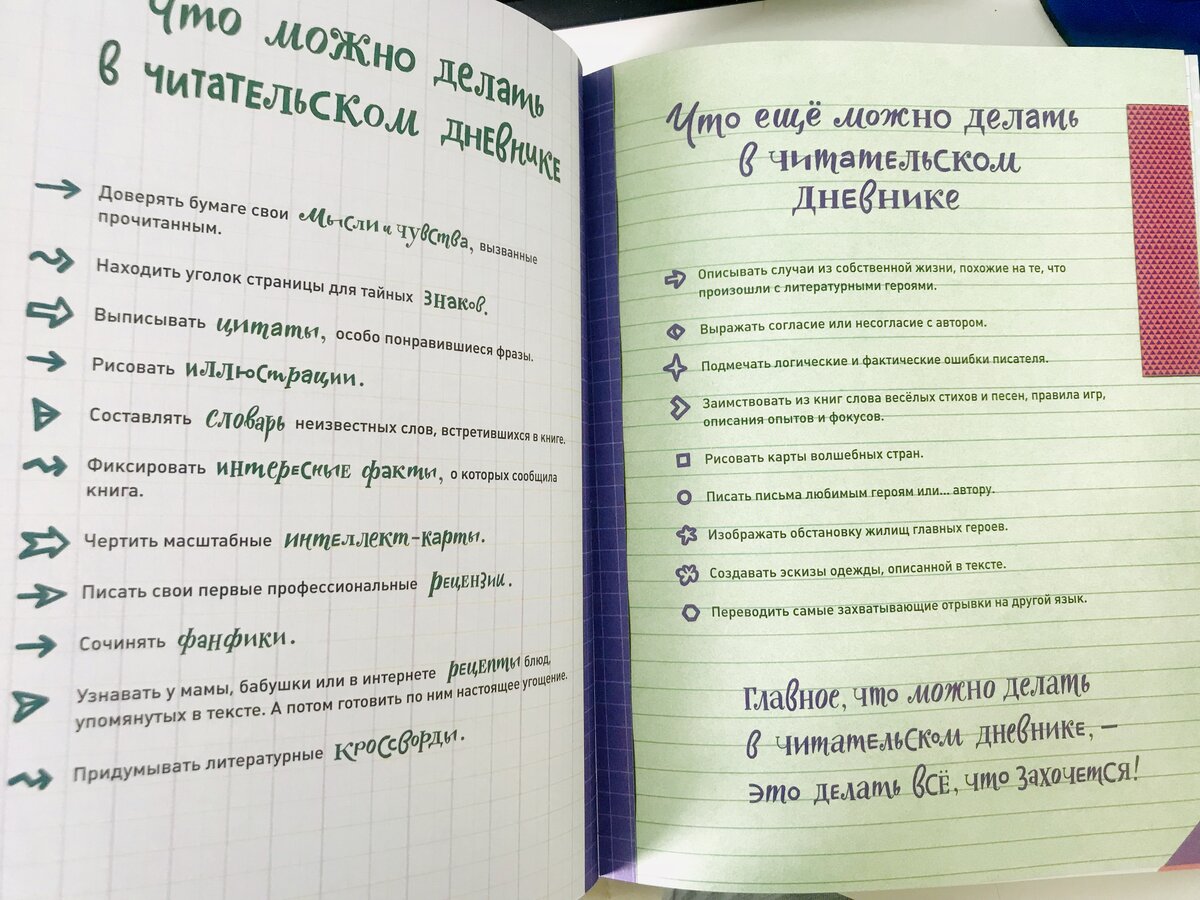 Что можно делать
в читательском дневнике
Доверять бумаге свои мысли и чувства, вызванные
прочитанным.
Находить уголок страницы для тайных знаков.
Выписывать цитаты, особо понравившиеся фразы.
Рисовать иллюстрации.
Составлять словарь неизвестных слов, встретившихся в книге.
Фиксировать интересные факты, о которых сообщила
книга.
Чертить масштабные интеллект-карты.
Писать свои первые профессиональные рецензии.
Сочинять фанфики.
Узнавать у мамы, бабушки или в интернете рецепты блюд,
упомянутых в тексте. А потом готовить по ним настоящее угощение.
Придумывать литературные кроссворды.
Что ещё можно делать
в читательском
дневнике
Описывать случаи из собственной жизни, похожие на те, что
произошли с литературными героями.
Выражать согласие или несогласие с автором.
Подмечать логические и фактические ошибки писателя.
Заимствовать из книг слова весёлых стихов и песен, правила игр,
описания опытов и фокусов.
Рисовать карты волшебных стран.
Писать письма любимым героям или... автору.
Изображать обстановку жилищ главных героев.
Создавать эскизы одежды, описанной в тексте.
Переводить самые захватывающие отрывки на другой язык.
Главное, что можно делать
в читательском дневнике, —
это делать всё, что захочется!